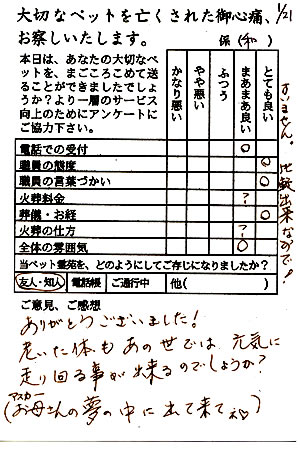 大切なペットを亡くされた御心痛、 1/21
お察しいたします。
係(和)
本日は、あなたの大切なペットを、まごころこめて送ることができましたでしょうか？より一層のサービス向上のためにアンケートにご協力下さい。
かなり悪い
やや悪い
ふつう
まあまあ良い
とても良い
電話での受付 ○
職員の態度 ○
職員の言葉づかい ○
火葬料金 ?
葬儀・お経 ○
火葬の仕方 ?
全体の雰囲気 ○
すいません。比較出来なので!
当ペット霊苑を、どのようにしてご存じになりましたか？
友人・知人 電話帳 ご通行中 他( )
ご意見、ご感想
ありがとうございました!
老いた体もあの世では、元気に
走り回る事が出来るのでしょうか?
アスカー
(お母さんの夢の中に出て来てネ)